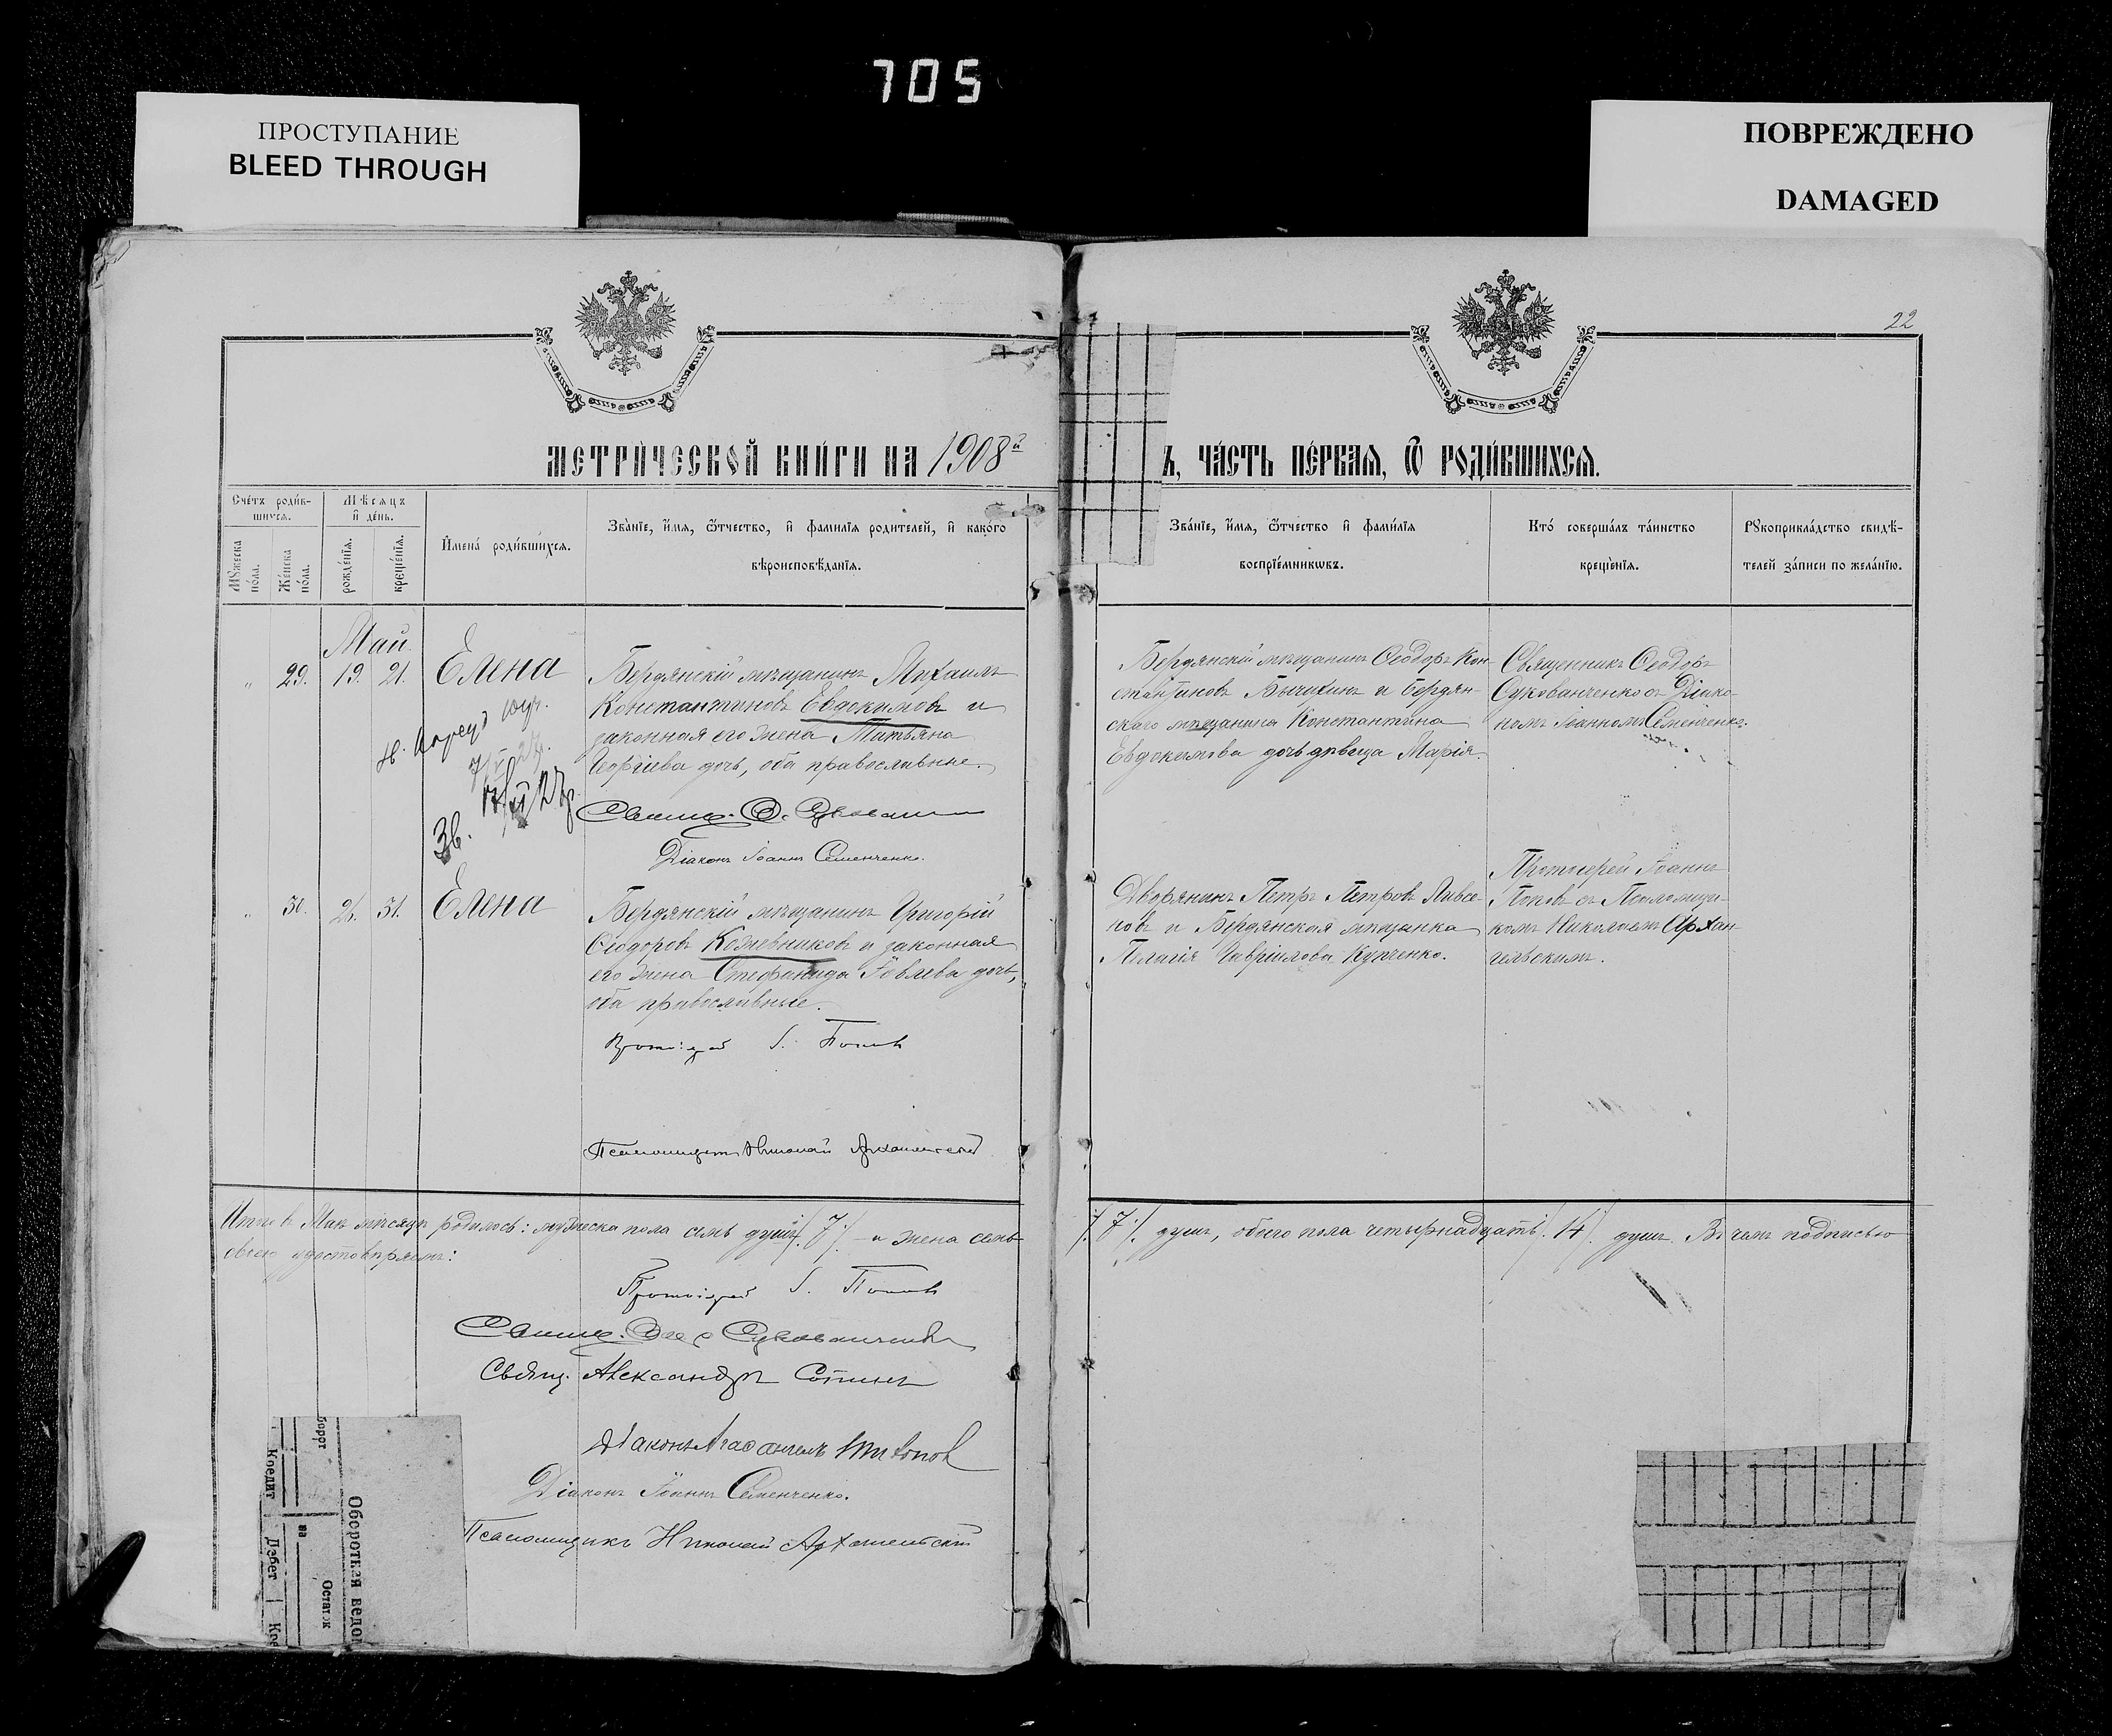 705
ПРОСТУПАНИЕ
BLEED THROUGH
ПОВРЕЖДЕНО
DAMAGED
22
МЕТРИЧЕСКОЙ КНИГИ НА 1908й
Ъ, ЧАСТЬ ПЕРВАЯ, Ѿ РОДИВШИХСЯ.
Счетъ родив-
шихся.
Мꙋжеска пола.
Женска пола.
Мѣсяцъ
и день.
рожденія.
крещенія.
Имена родившихся.
Званіе, имя, ѿчество, и фамилія родителей, и какого
вѣроисповѣданія.
Званіе, имя, ѿчество и фамилія
воспріемникѡвъ.
Кто совершалъ таинство
крещенія.
Рꙋкоприкладство свидѣ-
телей записи по желанію.
Май
" 29. 19. 21. Елена
Бердянскій мѣщанинъ Михаилъ
Константиновъ Евдокимовъ и
законная его жена Татьяна
Георгіева дочь, оба православные.
Діаконъ Іоаннъ Семенченко.
Бердянскій мѣщанинъ Ѳеодоръ Кон-
стантиновъ Бычихинъ и бердян-
скаго мѣщанина Константина
Евдокимова дочь дѣвица Марія.
Священникъ Ѳеодоръ
Сукованченко съ Діако-
номъ Іоанномъ Семенченко.
Зв.
" 30. 26. 31. Елена
Бердянскій мѣщанинъ Григорій
Ѳеодоровъ Кожевниковъ и законная
его жена Стефанида Іовлева дочь,
оба православные.
Протоіерей І. Поповъ
Псаломщикъ Николай Архангельскій
Дворянинъ Петръ Петровъ
и Бердянская мѣщанка
Пелагія Гавріилова Купченко.
Протоіерей Іоаннъ
Поповъ съ Псаломщи-
комъ Николаемъ Архан-
гельскимъ.
Итого въ Маѣ мѣсяцѣ родилось: мужеска пола семь душъ /.7./ и женска семь
/.7./ душъ, обоего пола четырнадцать /.14./ душъ. Въ чемъ подписью
своею удостовѣряемъ:
Протоіерей І. Поповъ
Свящ. Ѳеод. Сукованченко
Свящ. Александръ Сотинъ
Діаконъ
Діаконъ Іоаннъ Семенченко.
Псаломщикъ Николай Архангельскій
Кредит
Дебет
на
Остаток
Оборотная ведом